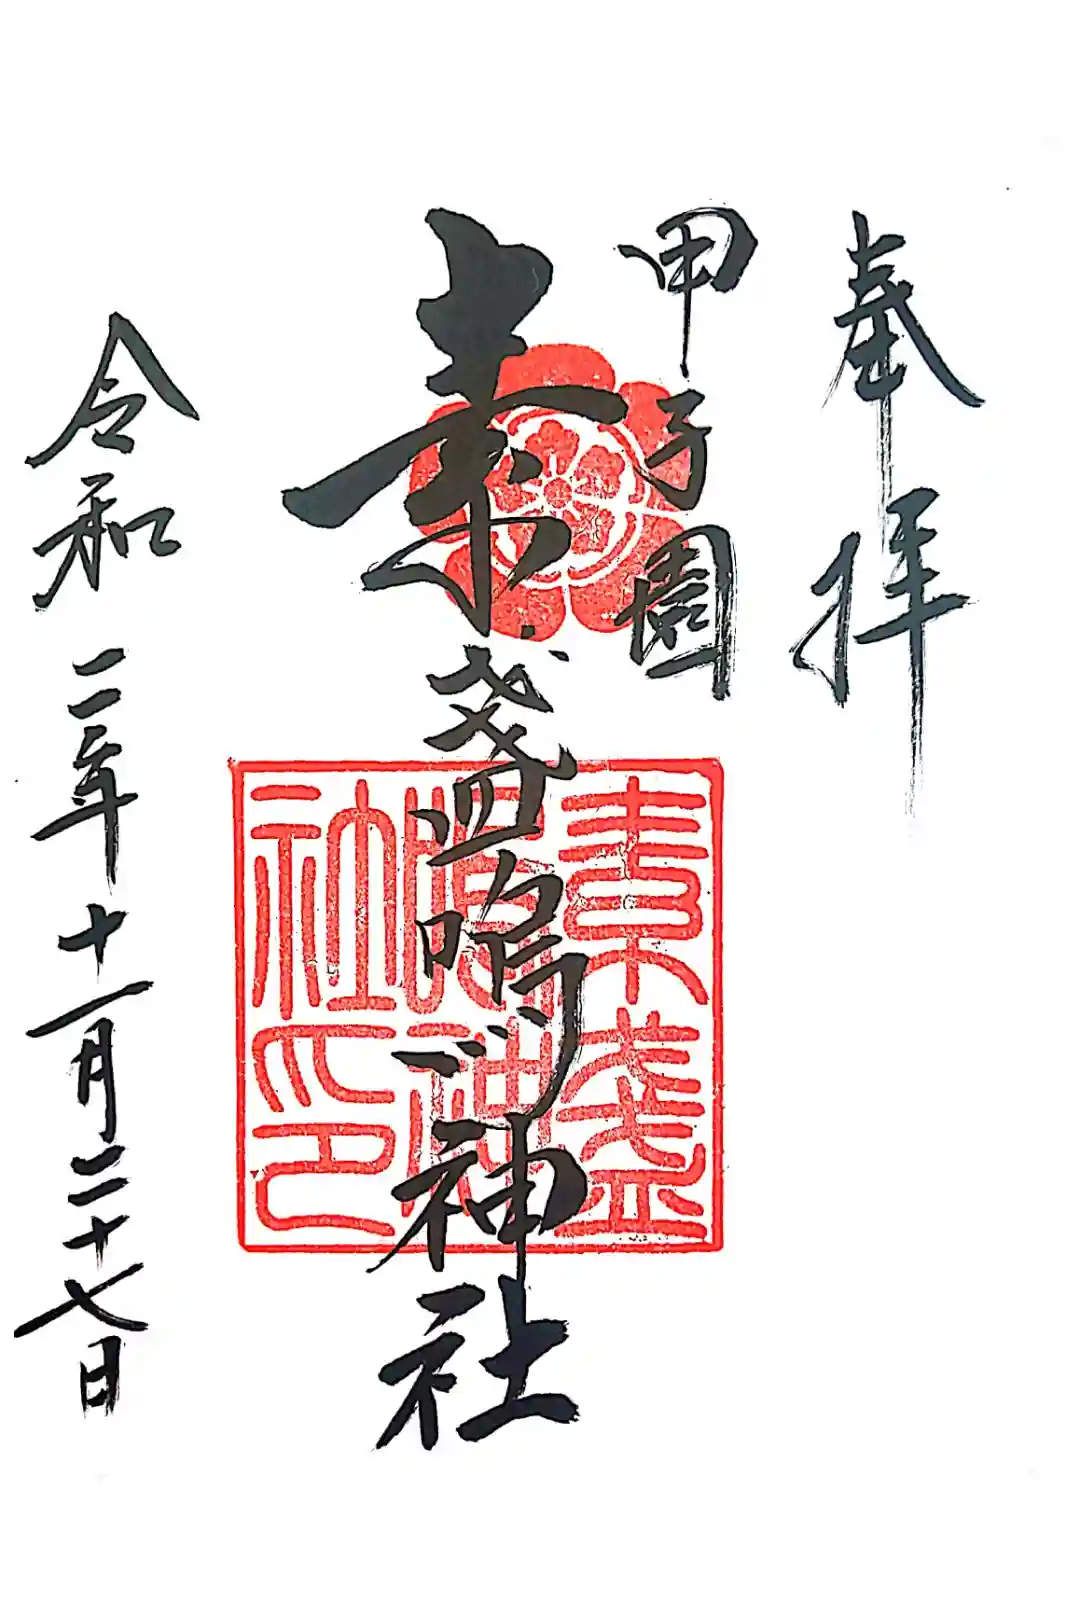 奉拝
甲子園
素盞嗚神社
素盞
嗚神
社印
令和二年十一月二十七日